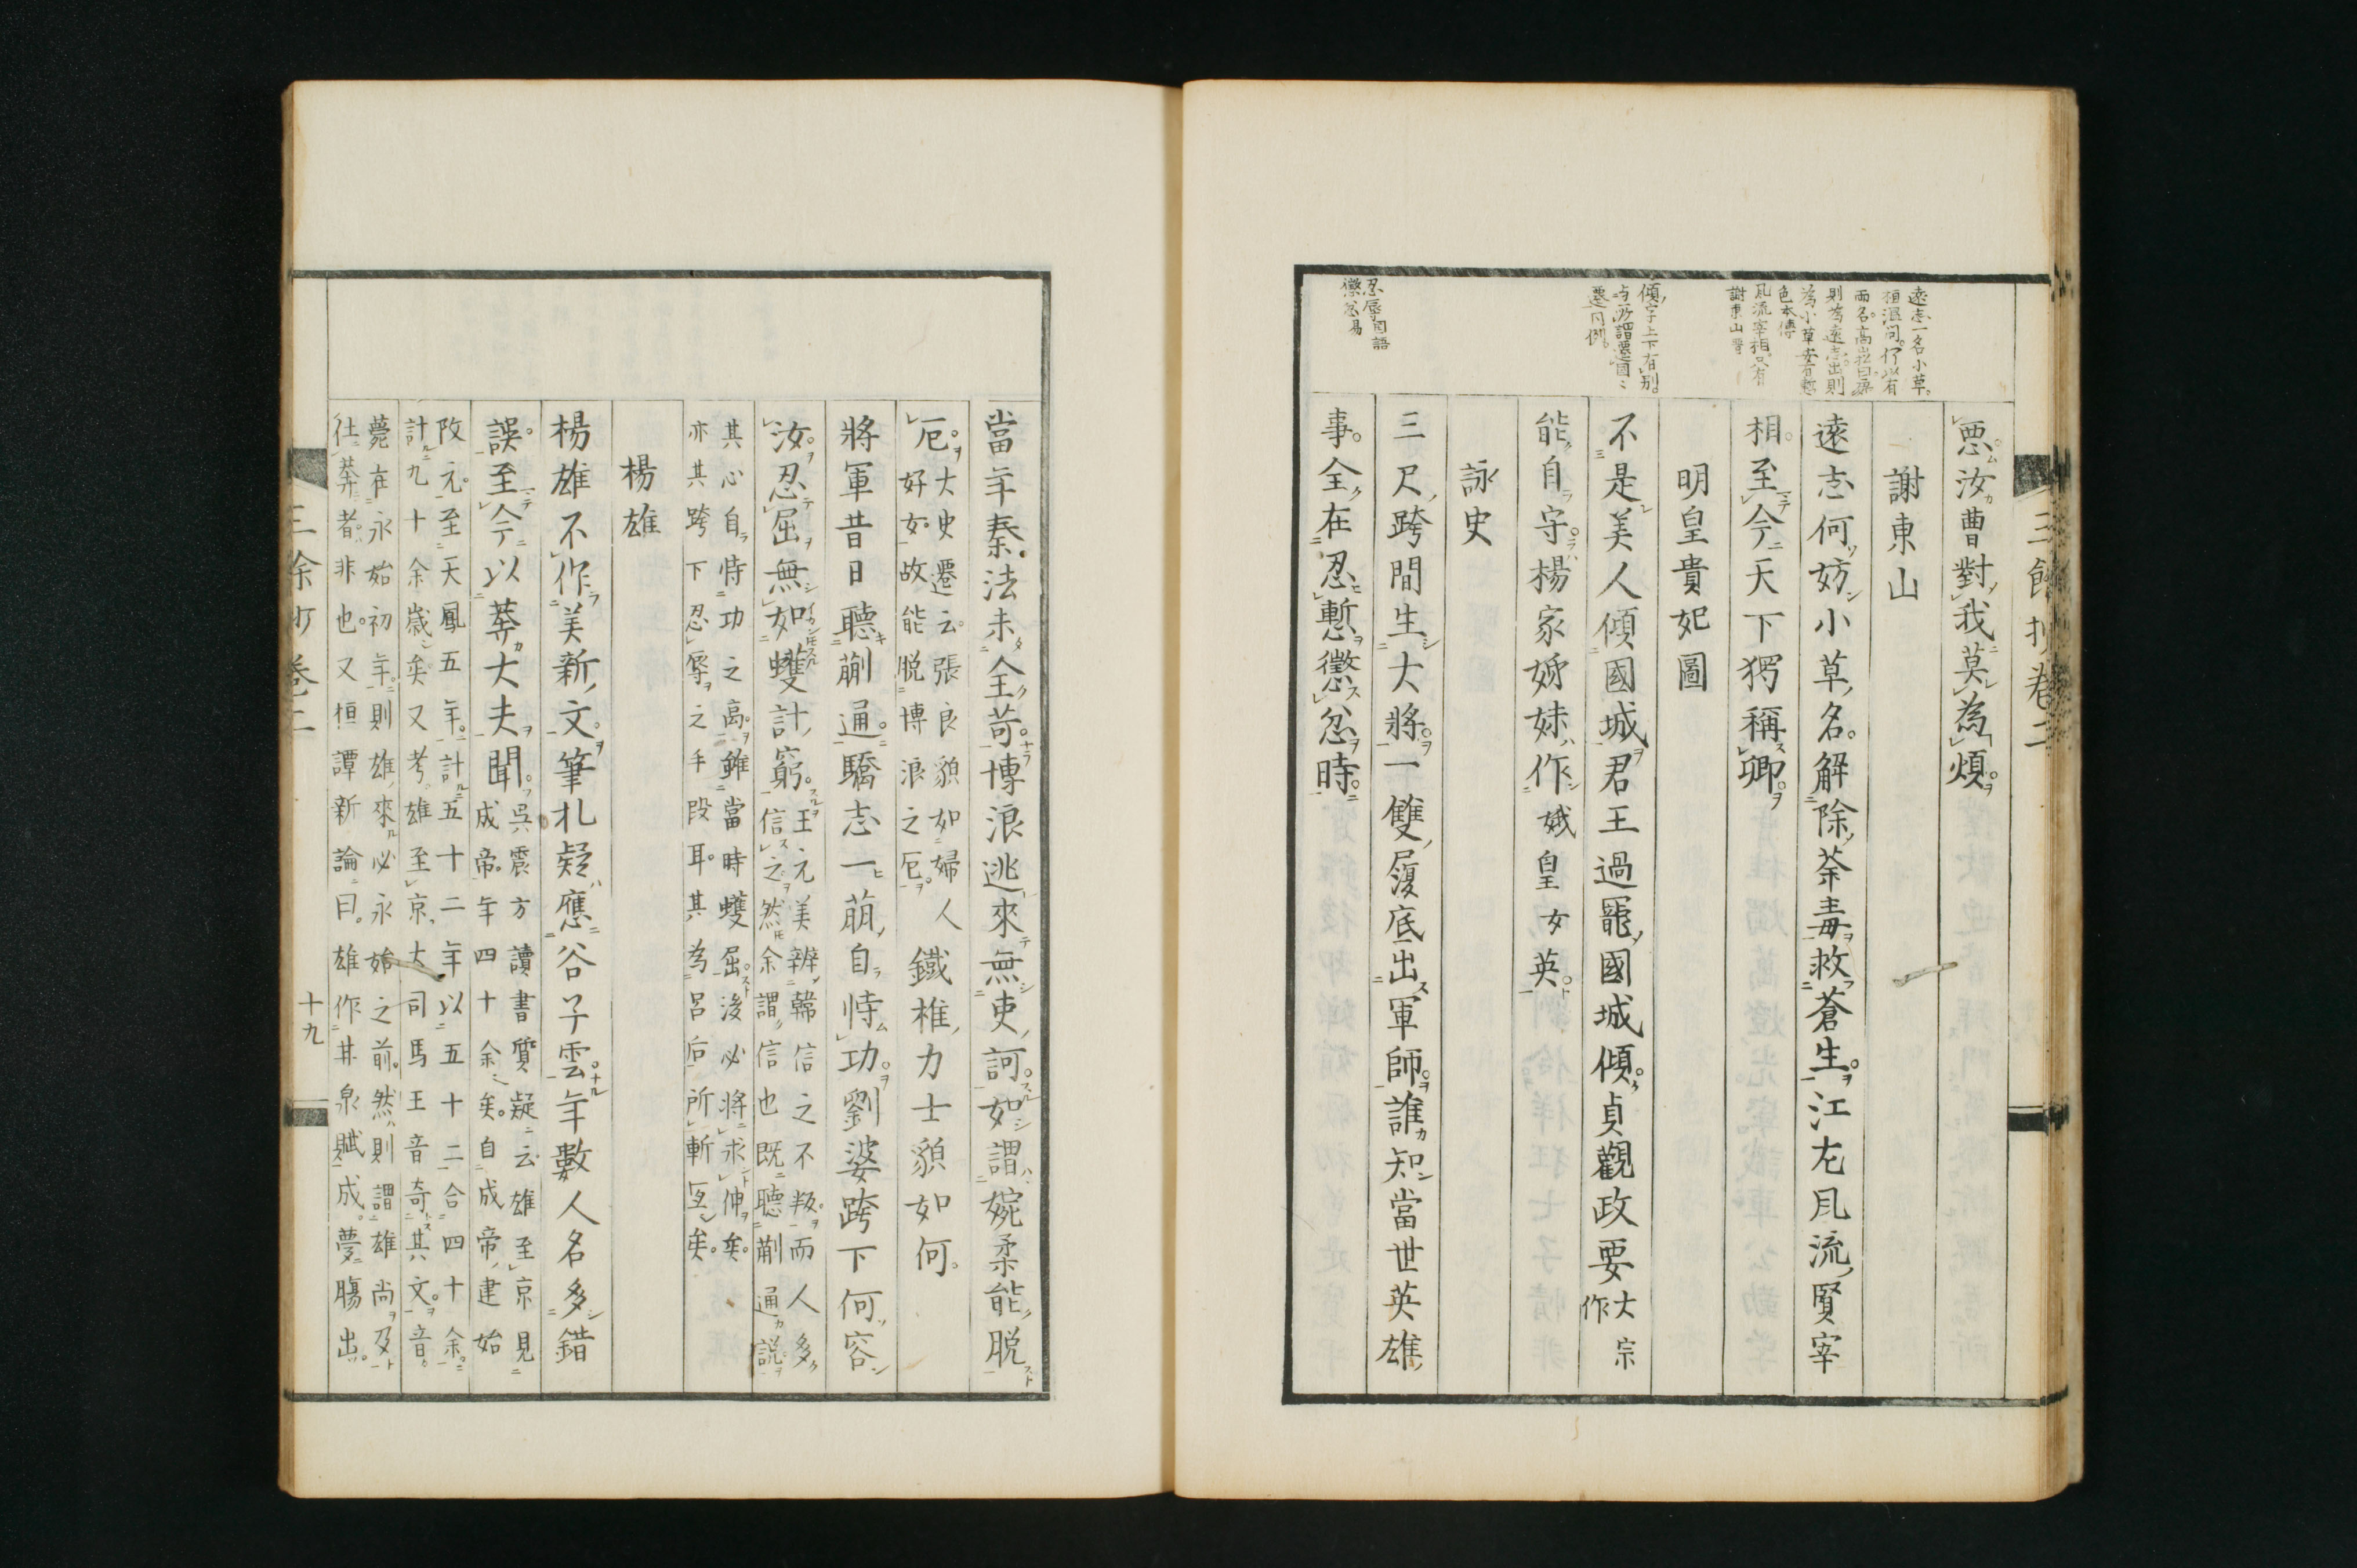 三餘抄卷二
遠志一名小草。
桓温問。何以有
兩名。高崧曰。處
則為遠志。出則
為小草。安有愧
色。本傳
風流宰相只有
謝東山
傾字上下有別。
悪汝曹對我莫為煩。
謝東山
遠志何妨小草名。解除荼毒救蒼生。江左風流賢宰
相。至今天下猶稱卿。
明皇貴妃圖
不是美人傾國城君王過寵國城傾。貞觀政要大宗作
能自守楊家姉妹作娥皇女英。
詠史
忍辱國語
懲忿易
三尺跨間生大將。一雙履底出軍師。誰知當世英雄
事。全在忍慙懲忿時。
當年秦法未全苛。博浪逃來無吏訶。如謂婉柔能脱
厄。大史遷云。張良貌如婦人
好女。故能脱博浪之厄。鐵椎力士貌如何。
將軍昔日聽蒯通。驕志一萠自恃功。劉婆跨下何容
汝。忍屈無如蠖計窮。王元美辨韓信之不叛。而人多
信之然余謂信也既聽蒯通説
其心自恃功之高。雖當時蠖屈。後必將求伸矣。
亦其跨下忍辱之手段耳。其為呂后所斬宜矣。
楊雄
楊雄不作美新文。筆札疑應谷子雲。年數人名多錯
誤。至今以莽大夫聞。呉震方讀書質疑云雄至京見
成帝。年四十余矣。自成帝建始
改元。至天鳳五年。計五十二年以五十二合四十余。
計九十余歳矣。又考雄至京、大司馬王音奇其文。音
薨在永始初年。則雄來必永始之前。然則謂雄尚及
仕莽者。非也。又桓譚新論曰。雄作甘泉賦成。夢腸出。
三余抄 卷二
十九